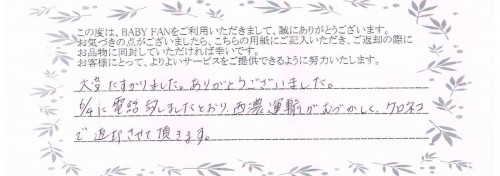 この度は、BABY FANをご利用いただきまして、誠にありがとうございます。
お気づきの点がございましたら、こちらの用紙にご記入いただき、ご返却の際に
お品物に同封していただければ幸いです。
お客様にとって、よりよいサービスをご提供できるように努力いたします。
大変たすかりました。ありがとうございました。
6/4に電話しましたとおり、西濃運輸がむづかしく、クロネコ
で返却させて頂きます。